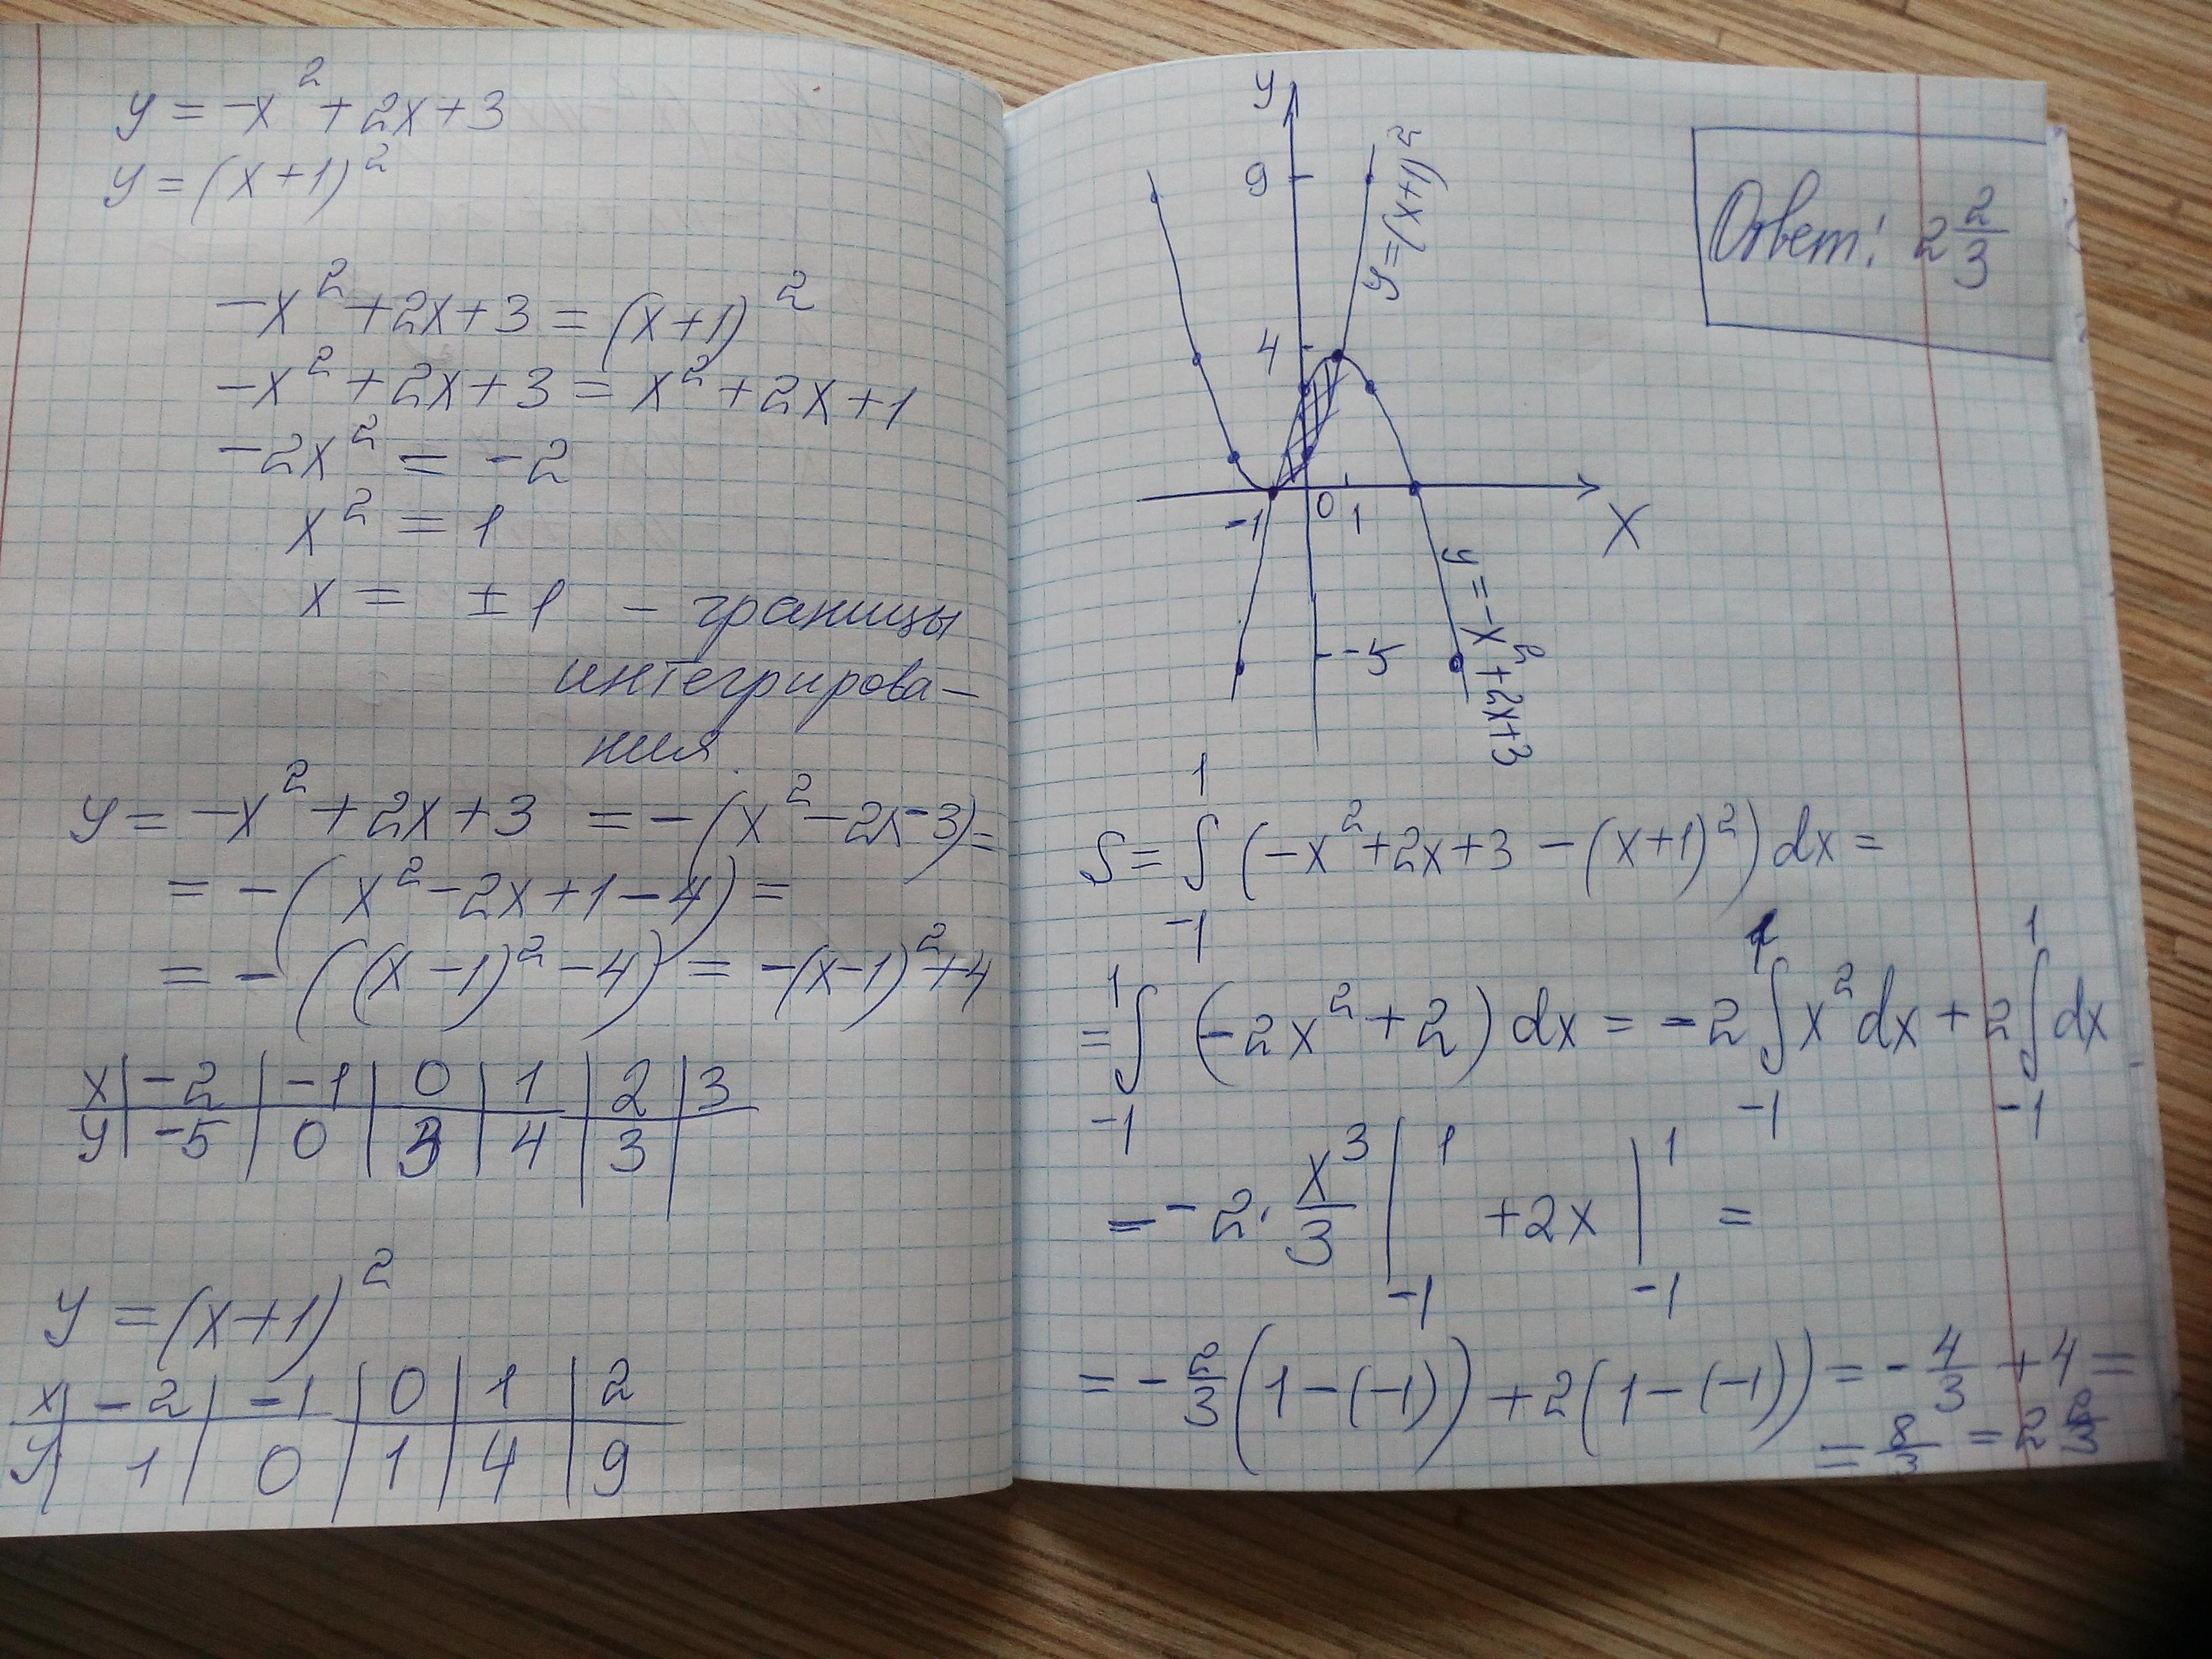 y = -x² + 2x + 3
y = (x+1)²
-x² + 2x + 3 = (x+1)²
-x² + 2x + 3 = x² + 2x + 1
-2x² = -2
x² = 1
x = ±1 - границы
интегрирова-
ния.
y = -x² + 2x + 3 = -(x² - 2x - 3) =
= -(x² - 2x + 1 - 4) =
= -((x-1)² - 4) = -(x-1)² + 4
x | -2 | -1 | 0 | 1 | 2 | 3
y | -5 | 0 | 3 | 4 | 3 |
y = (x+1)²
x | -2 | -1 | 0 | 1 | 2
y | 1 | 0 | 1 | 4 | 9
y
9
y = (x+1)²
4
-1 0 1
X
-5
y = -x² + 2x + 3
Ответ: 2 2/3
S = ∫₋₁¹ (-x² + 2x + 3 - (x+1)²) dx =
= ∫₋₁¹ (-2x² + 2) dx = -2 ∫₋₁¹ x² dx + 2 ∫₋₁¹ dx
= -2 · x³/3 |₋₁¹ + 2x |₋₁¹ =
= -2/3 (1-(-1)) + 2(1-(-1)) = -4/3 + 4 =
= 8/3 = 2 2/3